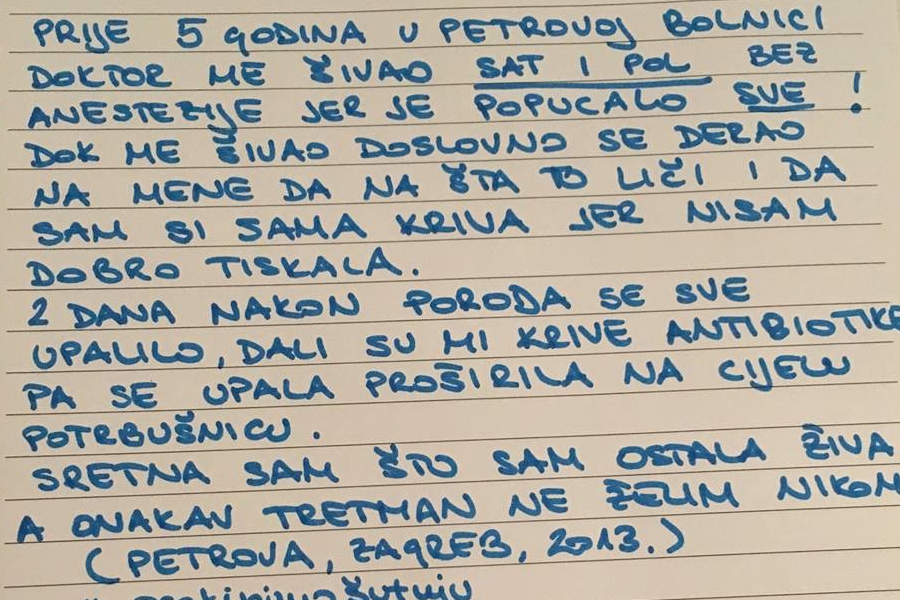 PRIJE 5 GODINA U PETROVOJ BOLNICI
DOKTOR ME ŠIVAO SAT I POL BEZ
ANESTEZIJE JER JE POPUCALO SVE !
DOK ME ŠIVAO DOSLOVNO SE DERAO
NA MENE DA NA ŠTA TO LIČI I DA
SAM SI SAMA KRIVA JER NISAM
DOBRO TISKALA.
2 DANA NAKON PORODA SE SVE
UPALILO, DALI SU MI KRIVE ANTIBIOTIKE
PA SE UPALA PROŠIRILA NA CIJELU
POTRBUŠNICU.
SRETNA SAM ŠTO SAM OSTALA ŽIVA
A ONAKAV TRETMAN NE ŽELIM NIKOM
(PETROVA, ZAGREB, 2013.)